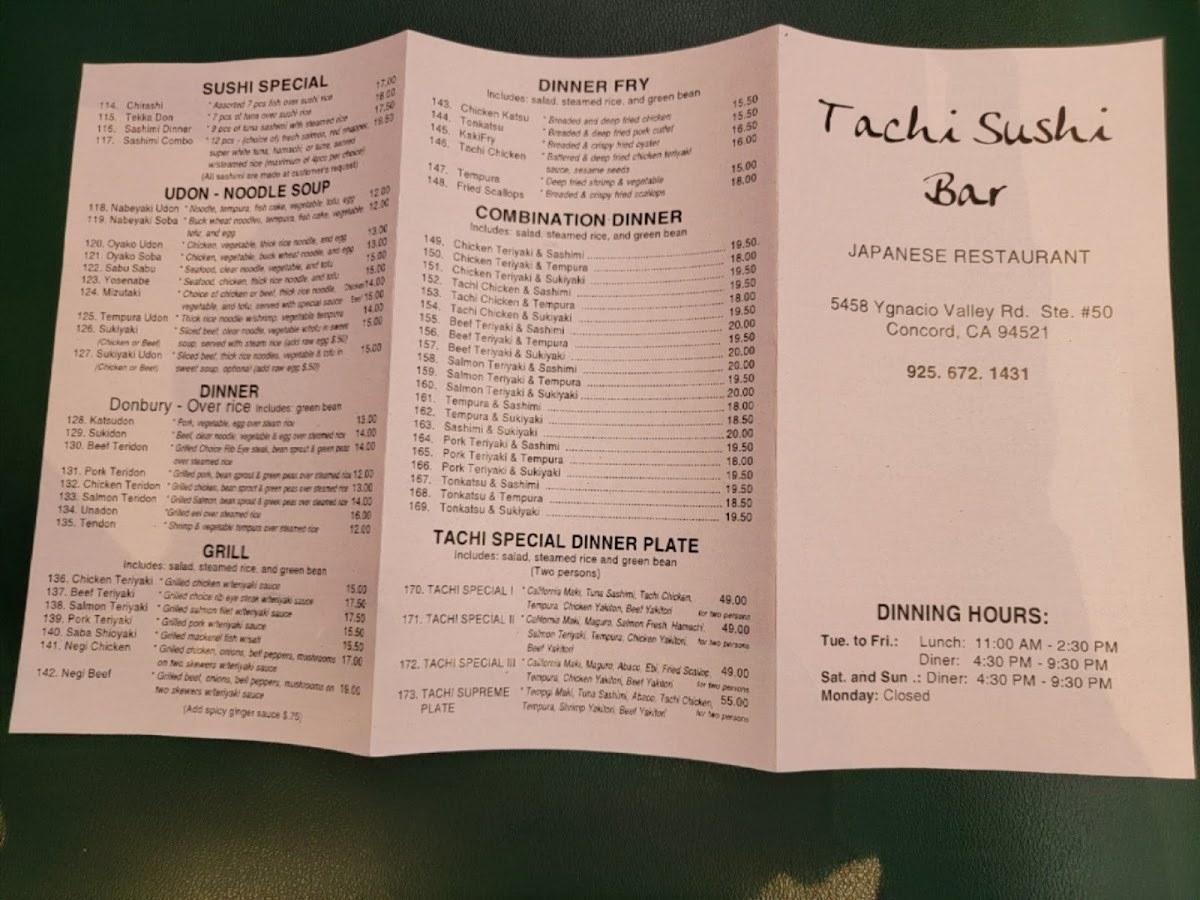 SUSHI SPECIAL
114. Chirashi * Assorted 7 pcs fish over sushi rice 17.00
115. Tekka Don * 7 pcs of tuna over sushi rice 16.00
116. Sashimi Dinner * 9 pcs of tuna sashimi with steamed rice 17.50
117. Sashimi Combo * 12 pcs - (choice of) fresh salmon, red snapper, 19.50
super white tuna, hamachi, or tuna, served
w/steamed rice (maximum of 4pcs per choice)
(All sashimi are made at customer's request)
UDON - NOODLE SOUP
118. Nabeyaki Udon * Noodle, tempura, fish cake, vegetable, tofu, egg 12.00
119. Nabeyaki Soba * Buck wheat noodles, tempura, fish cake, vegetable, 12.00
tofu, and egg
120. Oyako Udon * Chicken, vegetable, thick rice noodle, and egg 13.00
121. Oyako Soba * Chicken, vegetable, buck wheat noodle, and egg 13.00
122. Sabu Sabu * Seafood, clear noodle, vegetable, and tofu 15.00
123. Yosenabe * Seafood, chicken, thick rice noodle, and tofu 15.00
124. Mizutaki * Choice of chicken or beef, thick rice noodle, Chicken 14.00
vegetable, and tofu, served with special sauce Beef 15.00
125. Tempura Udon * Thick rice noodle w/shrimp, vegetable tempura 14.00
126. Sukiyaki * Sliced beef, clear noodle, vegetable w/tofu in sweet 15.00
(Chicken or Beef) soup, served with steam rice (add raw egg $.50)
127. Sukiyaki Udon * Sliced beef, thick rice noodles, vegetable & tofu in 15.00
(Chicken or Beef) sweet soup, optional (add raw egg $.50)
DINNER
Donbury - Over rice Includes: green bean
128. Katsudon * Pork, vegetable, egg over steam rice 13.00
129. Sukidon * Beef, clear noodle, vegetable & egg over steamed rice 14.00
130. Beef Teridon * Grilled Choice Rib Eye steak, bean sprout & green peas 14.00
over steamed rice
131. Pork Teridon * Grilled pork, bean sprout & green peas over steamed rice 12.00
132. Chicken Teridon * Grilled chicken, bean sprout & green peas over steamed rice 13.00
133. Salmon Teridon * Grilled Salmon, bean sprout & green peas over steamed rice 14.00
134. Unadon *Grilled eel over steamed rice 16.00
135. Tendon * Shrimp & vegetable tempura over steamed rice 12.00
GRILL
Includes: salad, steamed rice, and green bean
136. Chicken Teriyaki * Grilled chicken w/teriyaki sauce 15.00
137. Beef Teriyaki * Grilled choice rib eye steak w/teriyaki sauce 17.50
138. Salmon Teriyaki * Grilled salmon filet w/teriyaki sauce 17.50
139. Pork Teriyaki * Grilled pork w/teriyaki sauce 15.50
140. Saba Shioyaki * Grilled mackerel fish w/salt 15.50
141. Negi Chicken * Grilled chicken, onions, bell peppers, mushrooms 17.00
on two skewers w/teriyaki sauce
142. Negi Beef * Grilled beef, onions, bell peppers, mushrooms on 19.00
two skewers w/teriyaki sauce
(Add spicy ginger sauce $.75)
DINNER FRY
Includes: salad, steamed rice, and green bean
143. Chicken Katsu * Breaded and deep fried chicken 15.50
144. Tonkatsu * Breaded & deep fried pork cutlet 15.50
145. KakiFry * Breaded & crispy fried oyster 16.50
146. Tachi Chicken * Battered & deep fried chicken teriyaki 16.00
sauce, sesame seeds
147. Tempura * Deep fried shrimp & vegetable 15.00
148. Fried Scallops * Breaded & crispy fried scallops 18.00
COMBINATION DINNER
Includes: salad, steamed rice, and green bean
149. Chicken Teriyaki & Sashimi 19.50
150. Chicken Teriyaki & Tempura 18.00
151. Chicken Teriyaki & Sukiyaki 19.50
152. Tachi Chicken & Sashimi 19.50
153. Tachi Chicken & Tempura 18.00
154. Tachi Chicken & Sukiyaki 19.50
155. Beef Teriyaki & Sashimi 20.00
156. Beef Teriyaki & Tempura 19.50
157. Beef Teriyaki & Sukiyaki 20.00
158. Salmon Teriyaki & Sashimi 20.00
159. Salmon Teriyaki & Tempura 19.50
160. Salmon Teriyaki & Sukiyaki 20.00
161. Tempura & Sashimi 18.00
162. Tempura & Sukiyaki 18.50
163. Sashimi & Sukiyaki 20.00
164. Pork Teriyaki & Sashimi 19.50
165. Pork Teriyaki & Tempura 18.00
166. Pork Teriyaki & Sukiyaki 19.50
167. Tonkatsu & Sashimi 19.50
168. Tonkatsu & Tempura 18.50
169. Tonkatsu & Sukiyaki 19.50
TACHI SPECIAL DINNER PLATE
Includes: salad, steamed rice and green bean
(Two persons)
170. TACHI SPECIAL I * California Maki, Tuna Sashimi, Tachi Chicken, 49.00
Tempura, Chicken Yakitori, Beef Yakitori for two persons
171. TACHI SPECIAL II * California Maki, Maguro, Salmon Fresh, Hamachi, 49.00
Salmon Teriyaki, Tempura, Chicken Yakitori, for two persons
Beef Yakitori
172. TACHI SPECIAL III * California Maki, Maguro, Abaco, Ebi, Fried Scallop, 49.00
Tempura, Chicken Yakitori, Beef Yakitori for two persons
173. TACHI SUPREME * Tempqi Maki, Tuna Sashimi, Abaco, Tachi Chicken, 55.00
PLATE Tempura, Shrimp Yakitori, Beef Yakitori for two persons
Tachi Sushi
Bar
JAPANESE RESTAURANT
5458 Ygnacio Valley Rd. Ste. #50
Concord, CA 94521
925. 672. 1431
DINNING HOURS:
Tue. to Fri.: Lunch: 11:00 AM - 2:30 PM
Diner: 4:30 PM - 9:30 PM
Sat. and Sun .: Diner: 4:30 PM - 9:30 PM
Monday: Closed